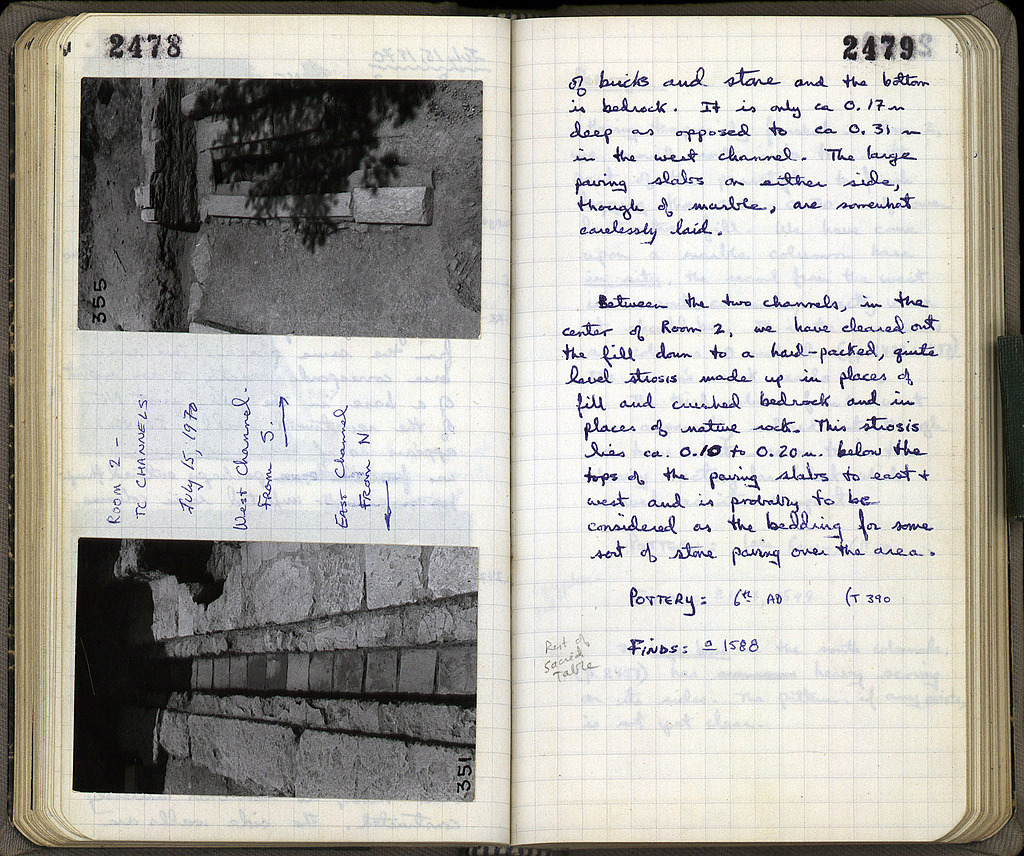 2478
355
ROOM 2 -
TC CHANNELS
July 15, 1970
West Channel.
FROM S.
East Channel
FROM N
351
2479
of bricks and stone and the bottom
is bedrock. It is only ca 0.17 m
deep as opposed to ca 0.31 m
in the west channel. The large
paving slabs on either side,
though of marble, are somewhat
carelessly laid.
Between the two channels, in the
center of Room 2, we have cleared out
the fill down to a hard-packed, quite
level strosis made up in places of
fill and crushed bedrock and in
places of native rock. This strosis
lies ca. 0.10 to 0.20 m. below the
tops of the paving slabs to east +
west and is probably to be
considered as the bedding for some
sort of stone paving over the area.
POTTERY: 6th AD (T 390
Rest of
Sacred
Table
FINDS: a 1588